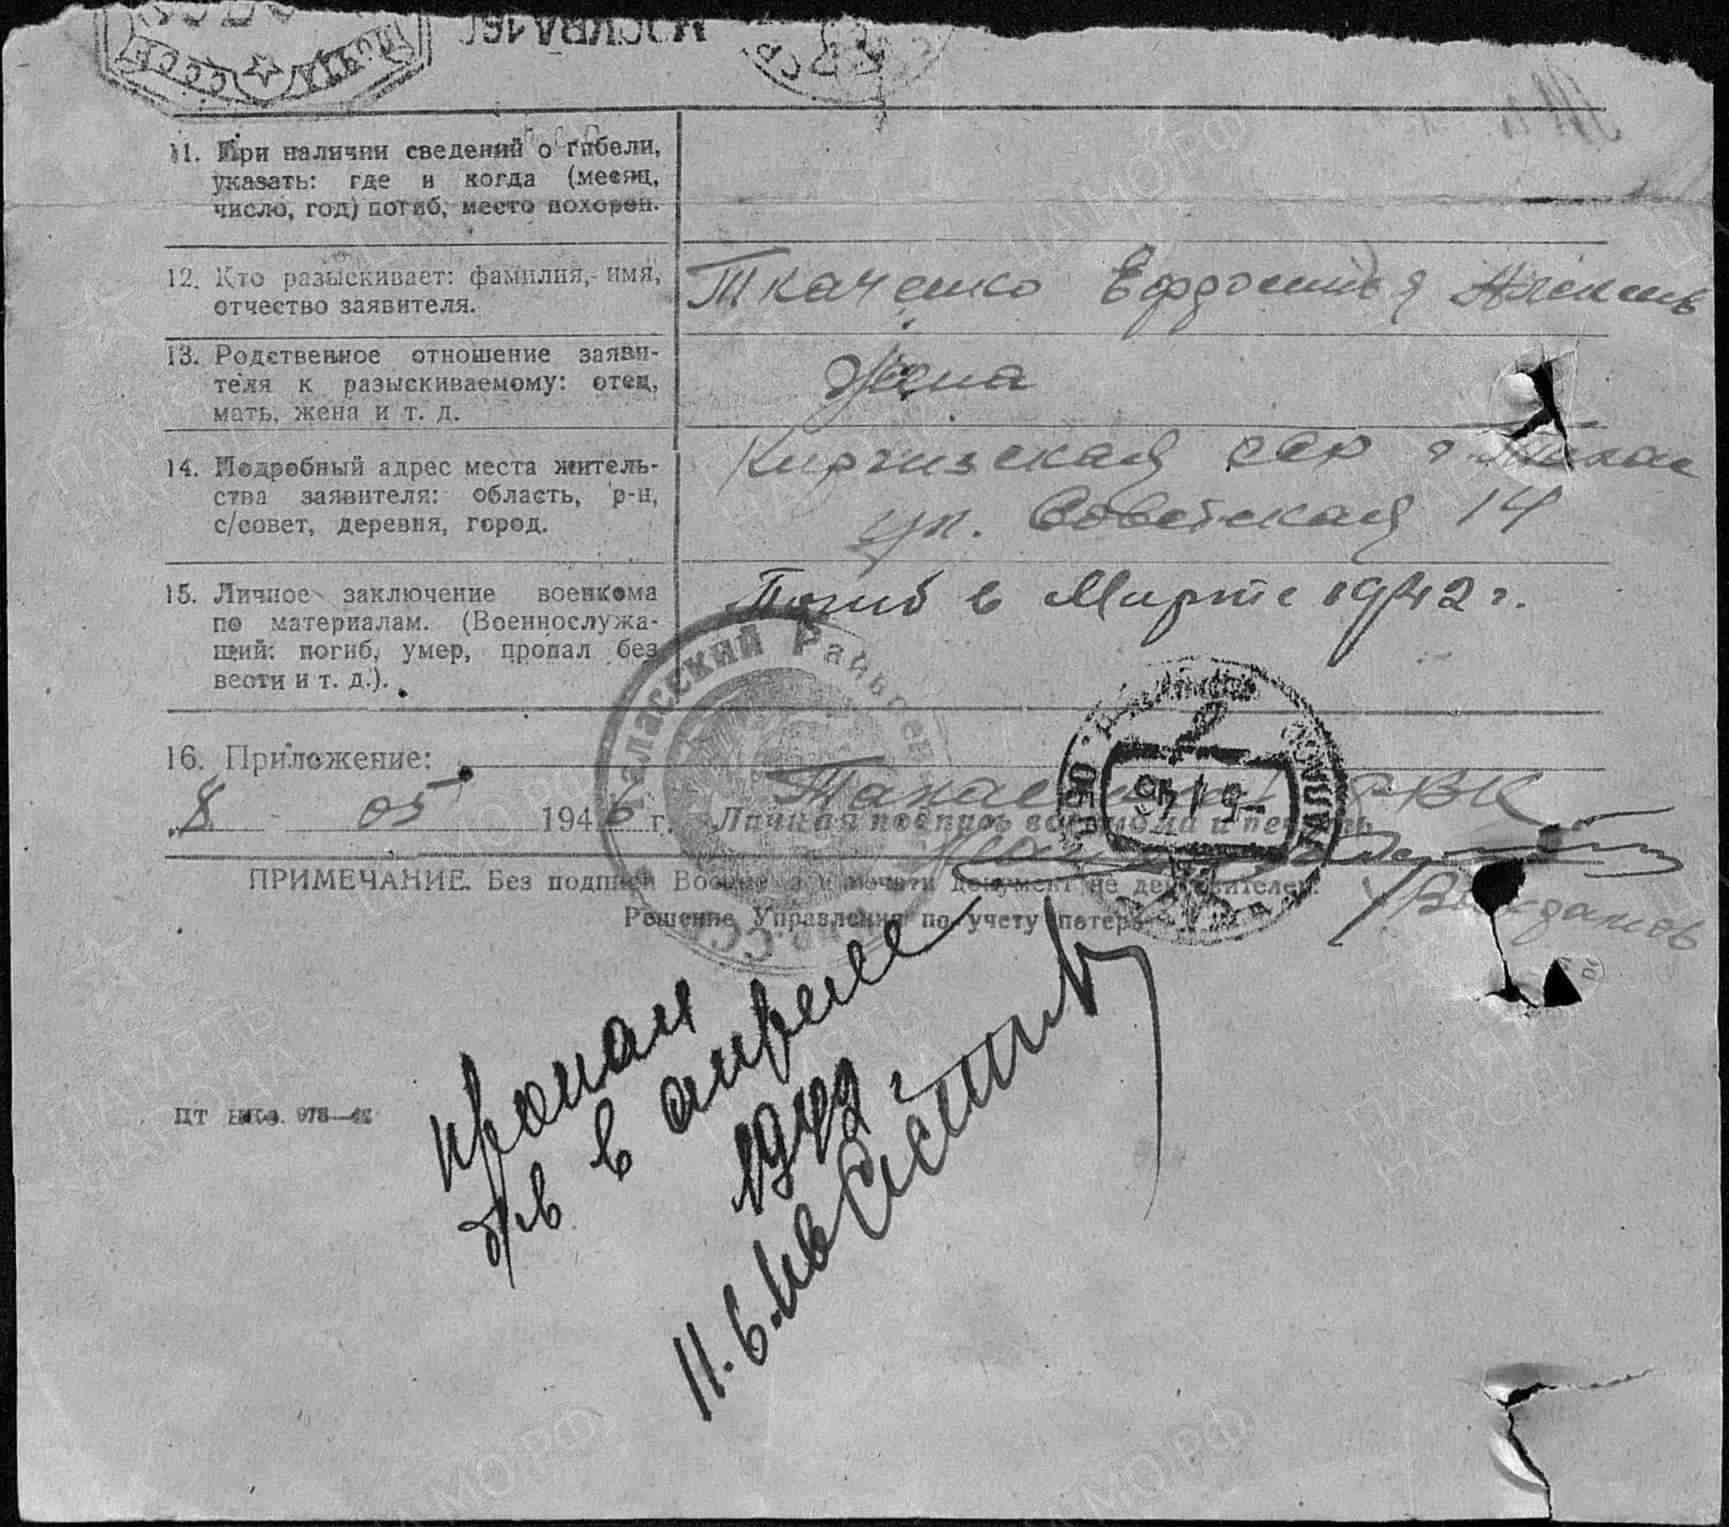 ПОЧТА СССР
МОСКВА
11. При наличии сведений о гибели,
указать: где и когда (месяц,
число, год) погиб, место похорон.
12. Кто разыскивает: фамилия, имя,
отчество заявителя.
Ткаченко Ефросиния Алексеев
13. Родственное отношение заяви-
теля к разыскиваемому: отец,
мать, жена и т. д.
Жена
14. Подробный адрес места житель-
ства заявителя: область, р-н,
с/совет, деревня, город.
Киргизская ССР г. Талас
ул. Советская 14
15. Личное заключение военкома
по материалам. (Военнослужа-
щий: погиб, умер, пропал без
вести и т. д.).
Погиб в Марте 1942 г.
Таласский Райвоен
16. Приложение:
Таласский РВК
8 05 1946 г. Личная подпись военкома и печать
ПРИМЕЧАНИЕ. Без подписи Военкома и печати документ не действителен.
Решение Управления по учету потерь
пропал
б/в в апреле
1942
11.6.46
ЦТ НКО. 978—42